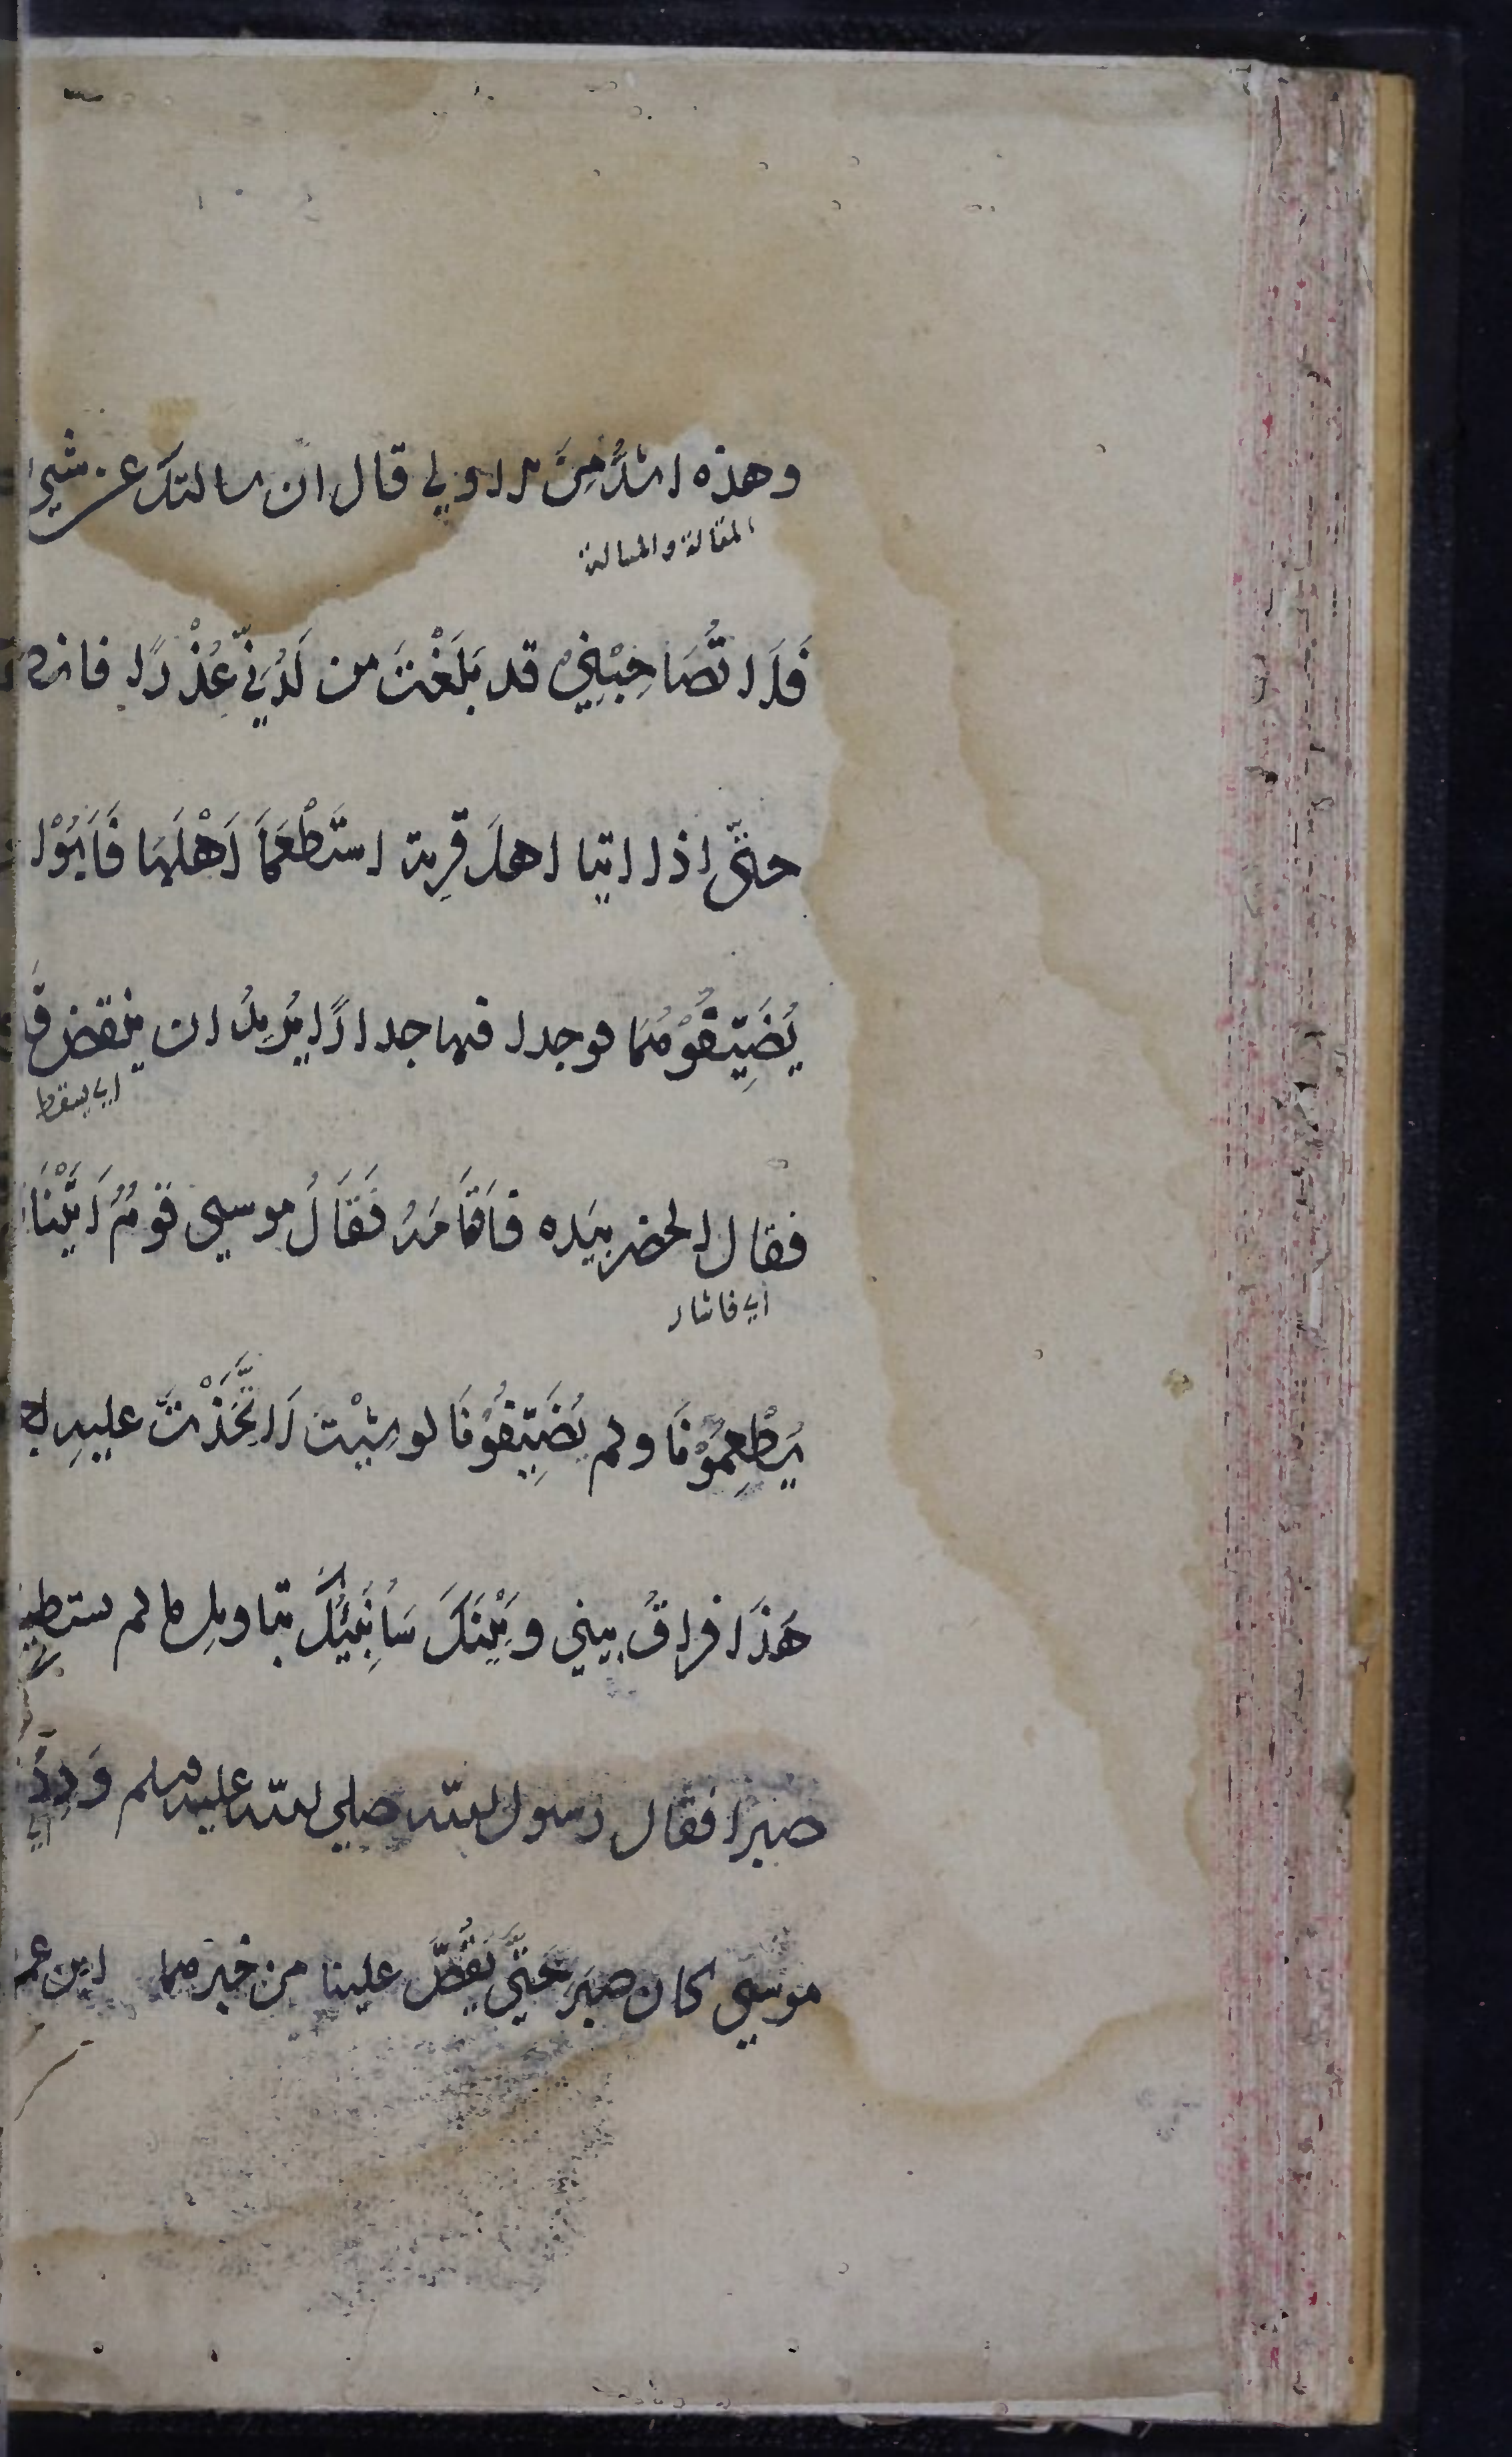 وهذه اشدُّ مِنَ الاولي قال ان سالتك عن شيء
المقالة والمسالة
فَلَا تُصَاحِبْنِي قد بَلَغْتَ من لَدُنِّي عُذْرًا فانط
حتَّى اذا اتيا اهلَ قرية اسْتَطْعَمَا اَهْلَهَا فَاَبَوْا
يُضَيِّفُوْهُمَا فوجدا فيها جدارًا يُرِيدُ ان ينقض فَ
اي يسقط
فقال الخضر بيَده فَاَقَامَهُ فَقَالَ موسى قَوْمٌ اَتَيْنَا
اي فاشار
يُطْعِمُوْنَا ولم يُضَيِّفُوْنَا لو شِئْتَ لَاتَّخَذْتَ عليهِ
هَذَا فراقُ بيني وَبَيْنَكَ سَاُنَبِّئُكَ بتاويلِ ما لم تستطع
صبرا فقال رسول الله صلى الله عليه وسلم وَدِدْ
اي
موسى كان صبَر حَتَّى يَقُصَّ علينا من خبرهما ابن عم